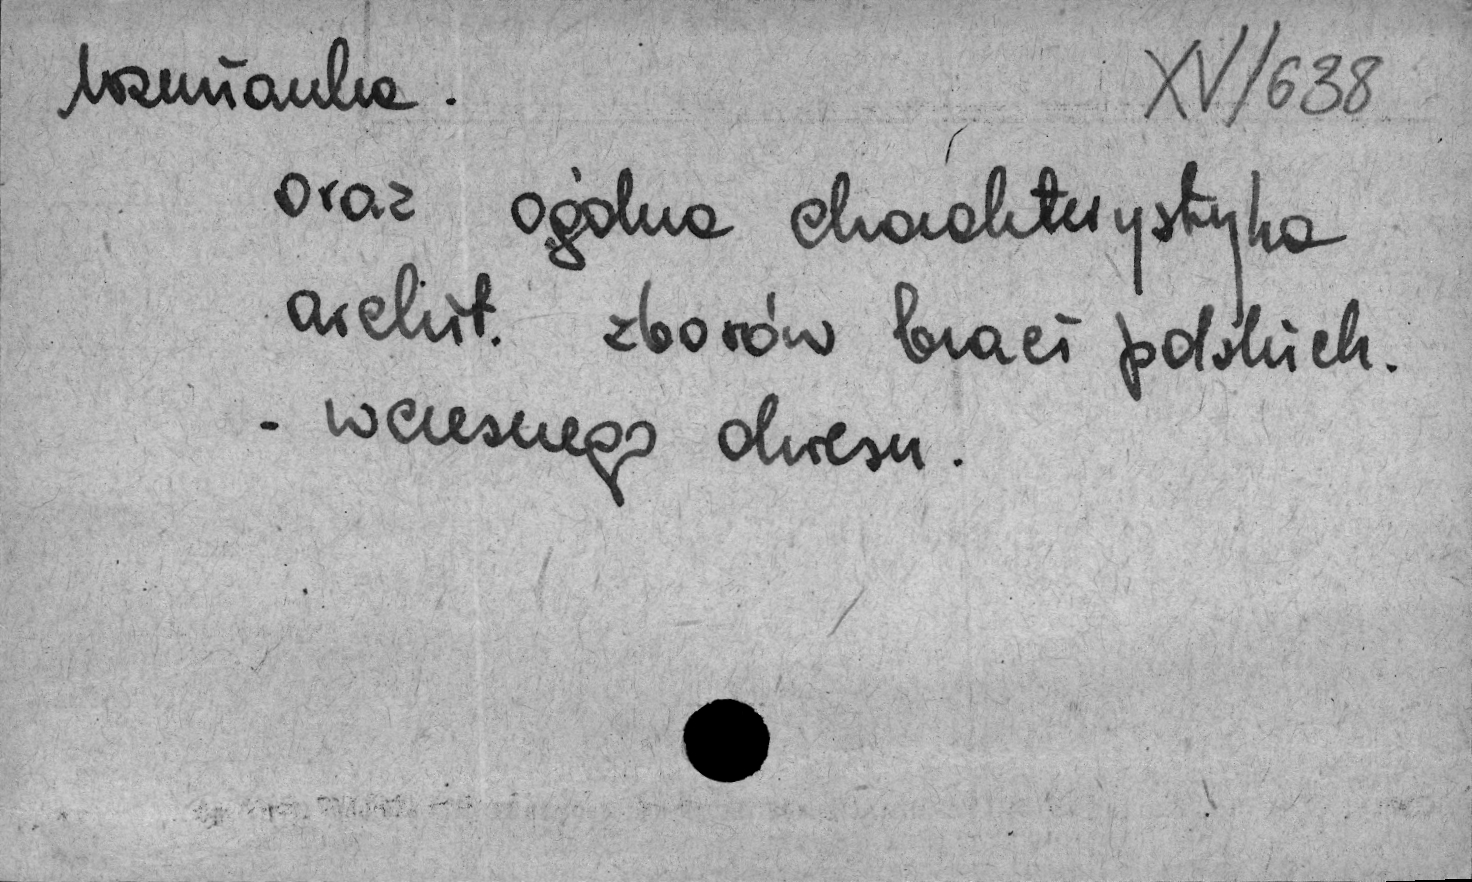 Wzmianka.
XV/638
oraz ogólna charakterystyka
archit. zborów braci polskich.
- wczesnego okresu.